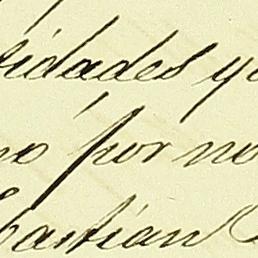 idades y
no por no
bastian